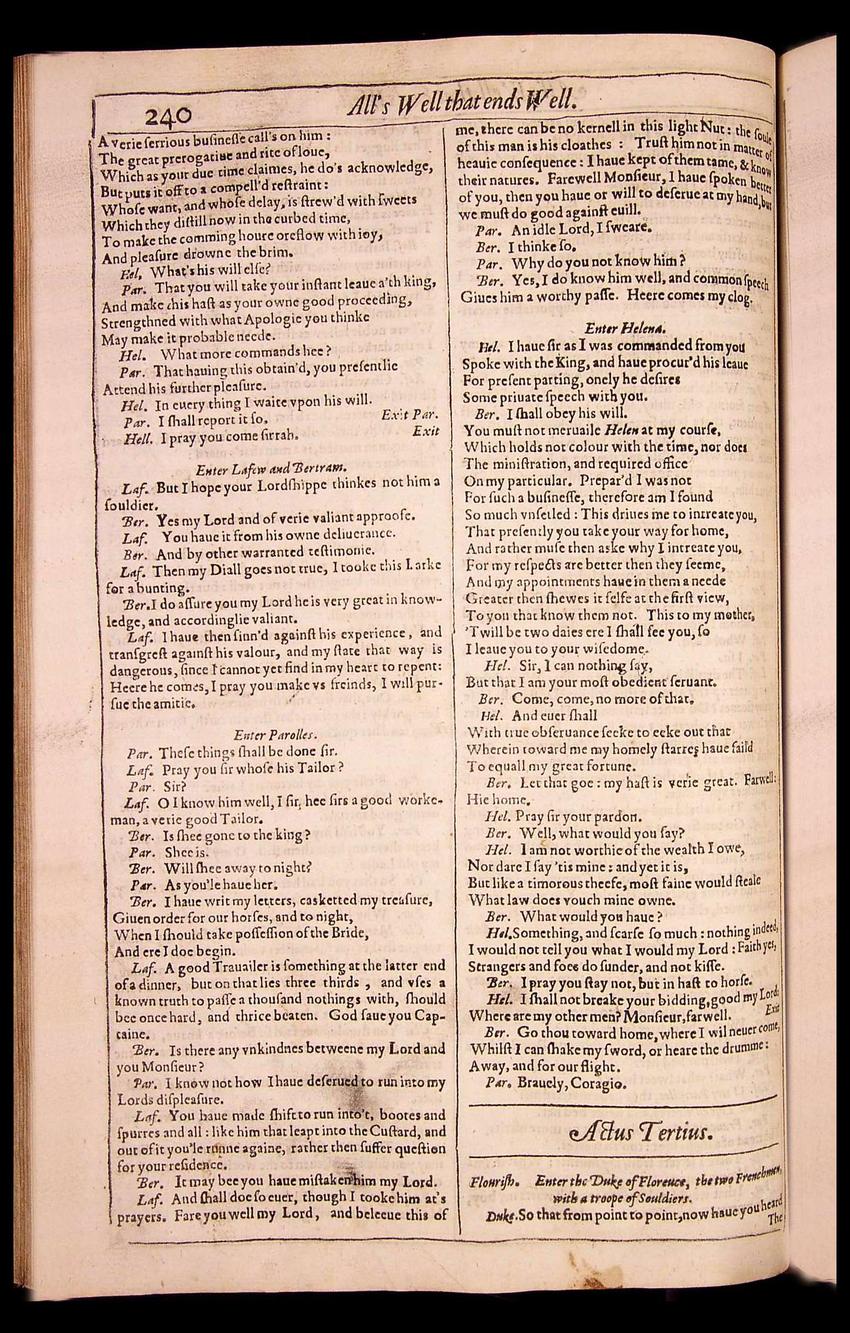 240
All's Well that ends Well.
A verie serrious businesse call's on him :
The great prerogatiue and rite of loue,
Which as your due time claimes, he do's acknowledge,
But puts it off to a compell'd restraint:
Whose want, and whose delay, is strew'd with sweets
Which they distill now in the curbed time,
To make the comming houre oreflow with ioy,
And pleasure drowne the brim.
Hel, What's his will else?
Par. That you will take your instant leaue a'th king,
And make this hast as your owne good proceeding,
Strengthned with what Apologie you thinke
May make it probable neede.
Hel. What more commands hee?
Par. That hauing this obtain'd, you presentlie
Attend his further pleasure.
Hel. In euery thing I waite vpon his will.
Par. I shall report it so. Exit Par.
Hell. I pray you come sirrah. Exit
Enter Lafew and Bertram.
Laf. But I hope your Lordshippe thinkes not him a
souldier.
Ber. Yes my Lord and of verie valiant approofe.
Laf. You haue it from his owne deliuerance.
Ber. And by other warranted testimonie.
Laf. Then my Diall goes not true, I tooke this Larke
for a bunting.
Ber. I do assure you my Lord he is very great in know-
ledge, and accordinglie valiant.
Laf. I haue then sinn'd against his experience, and
transgrest against his valour, and my state that way is
dangerous, since I cannot yet find in my heart to repent:
Heere he comes, I pray you make vs freinds, I will pur-
sue the amitie.
Enter Parolles.
Par. These things shall be done sir.
Laf. Pray you sir whose his Tailor?
Par. Sir?
Laf. O I know him well, I sir, hee sirs a good worke-
man, a verie good Tailor.
Ber. Is shee gone to the king?
Par. Shee is.
Ber. Will shee away to night?
Par. As you'le haue her.
Ber. I haue writ my letters, casketted my treasure,
Giuen order for our horses, and to night,
When I should take possession of the Bride,
And ere I doe begin.
Laf. A good Trauailer is something at the latter end
of a dinner, but on that lies three thirds , and vses a
known truth to passe a thousand nothings with, should
bee once hard, and thrice beaten. God saue you Cap-
taine.
Ber. Is there any vnkindnes betweene my Lord and
you Monsieur?
Par. I know not how I haue deserued to run into my
Lords displeasure.
Laf. You haue made shift to run into't, bootes and
spurres and all : like him that leapt into the Custard, and
out of it you'le runne againe, rather then suffer question
for your residence.
Ber. It may bee you haue mistaken him my Lord.
Laf. And shall doe so euer, though I tooke him at's
prayers. Fare you well my Lord, and beleeue this of
me, there can be no kernell in this light Nut : the soule
of this man is his cloathes : Trust him not in matter of
heauie consequence : I haue kept of them tame, & know
their natures. Farewell Monsieur, I haue spoken better
of you, then you haue or will to deserue at my hand, but
we must do good against euill.
Par. An idle Lord, I sweare.
Ber. I thinke so.
Par. Why do you not know him?
Ber. Yes, I do know him well, and common speech
Giues him a worthy passe. Heere comes my clog.
Enter Helena.
Hel. I haue sir as I was commanded from you
Spoke with the King, and haue procur'd his leaue
For present parting, onely he desires
Some priuate speech with you.
Ber. I shall obey his will.
You must not meruaile Helen at my course,
Which holds not colour with the time, nor does
The ministration, and required office
On my particular. Prepar'd I was not
For such a businesse, therefore am I found
So much vnsetled : This driues me to intreate you,
That presently you take your way for home,
And rather muse then aske why I intreate you,
For my respects are better then they seeme,
And my appointments haue in them a neede
Greater then shewes it selfe at the first view,
To you that know them not. This to my mother,
'Twill be two daies ere I shall see you, so
I leaue you to your wisedome.
Hel. Sir, I can nothing say,
But that I am your most obedient seruant.
Ber. Come, come, no more of that.
Hel. And euer shall
With true obseruance seeke to eeke out that
Wherein toward me my homely starres haue faild
To equall my great fortune.
Ber. Let that goe : my hast is verie great. Farwell:
Hie home.
Hel. Pray sir your pardon.
Ber. Well, what would you say?
Hel. I am not worthie of the wealth I owe,
Nor dare I say 'tis mine : and yet it is,
But like a timorous theefe, most faine would steale
What law does vouch mine owne.
Ber. What would you haue?
Hel. Something, and scarse so much : nothing indeed,
I would not tell you what I would my Lord : Faith yes,
Strangers and foes do sunder, and not kisse.
Ber. I pray you stay not, but in hast to horse.
Hel. I shall not breake your bidding, good my Lord:
Where are my other men? Monsieur, farwell. Exit
Ber. Go thou toward home, where I wil neuer come,
Whilst I can shake my sword, or heare the drumme:
Away, and for our flight.
Par. Brauely, Coragio.
Actus Tertius.
Flourish. Enter the Duke of Florence, the two Frenchmen,
with a troope of Souldiers.
Duke. So that from point to point, now haue you heard
The